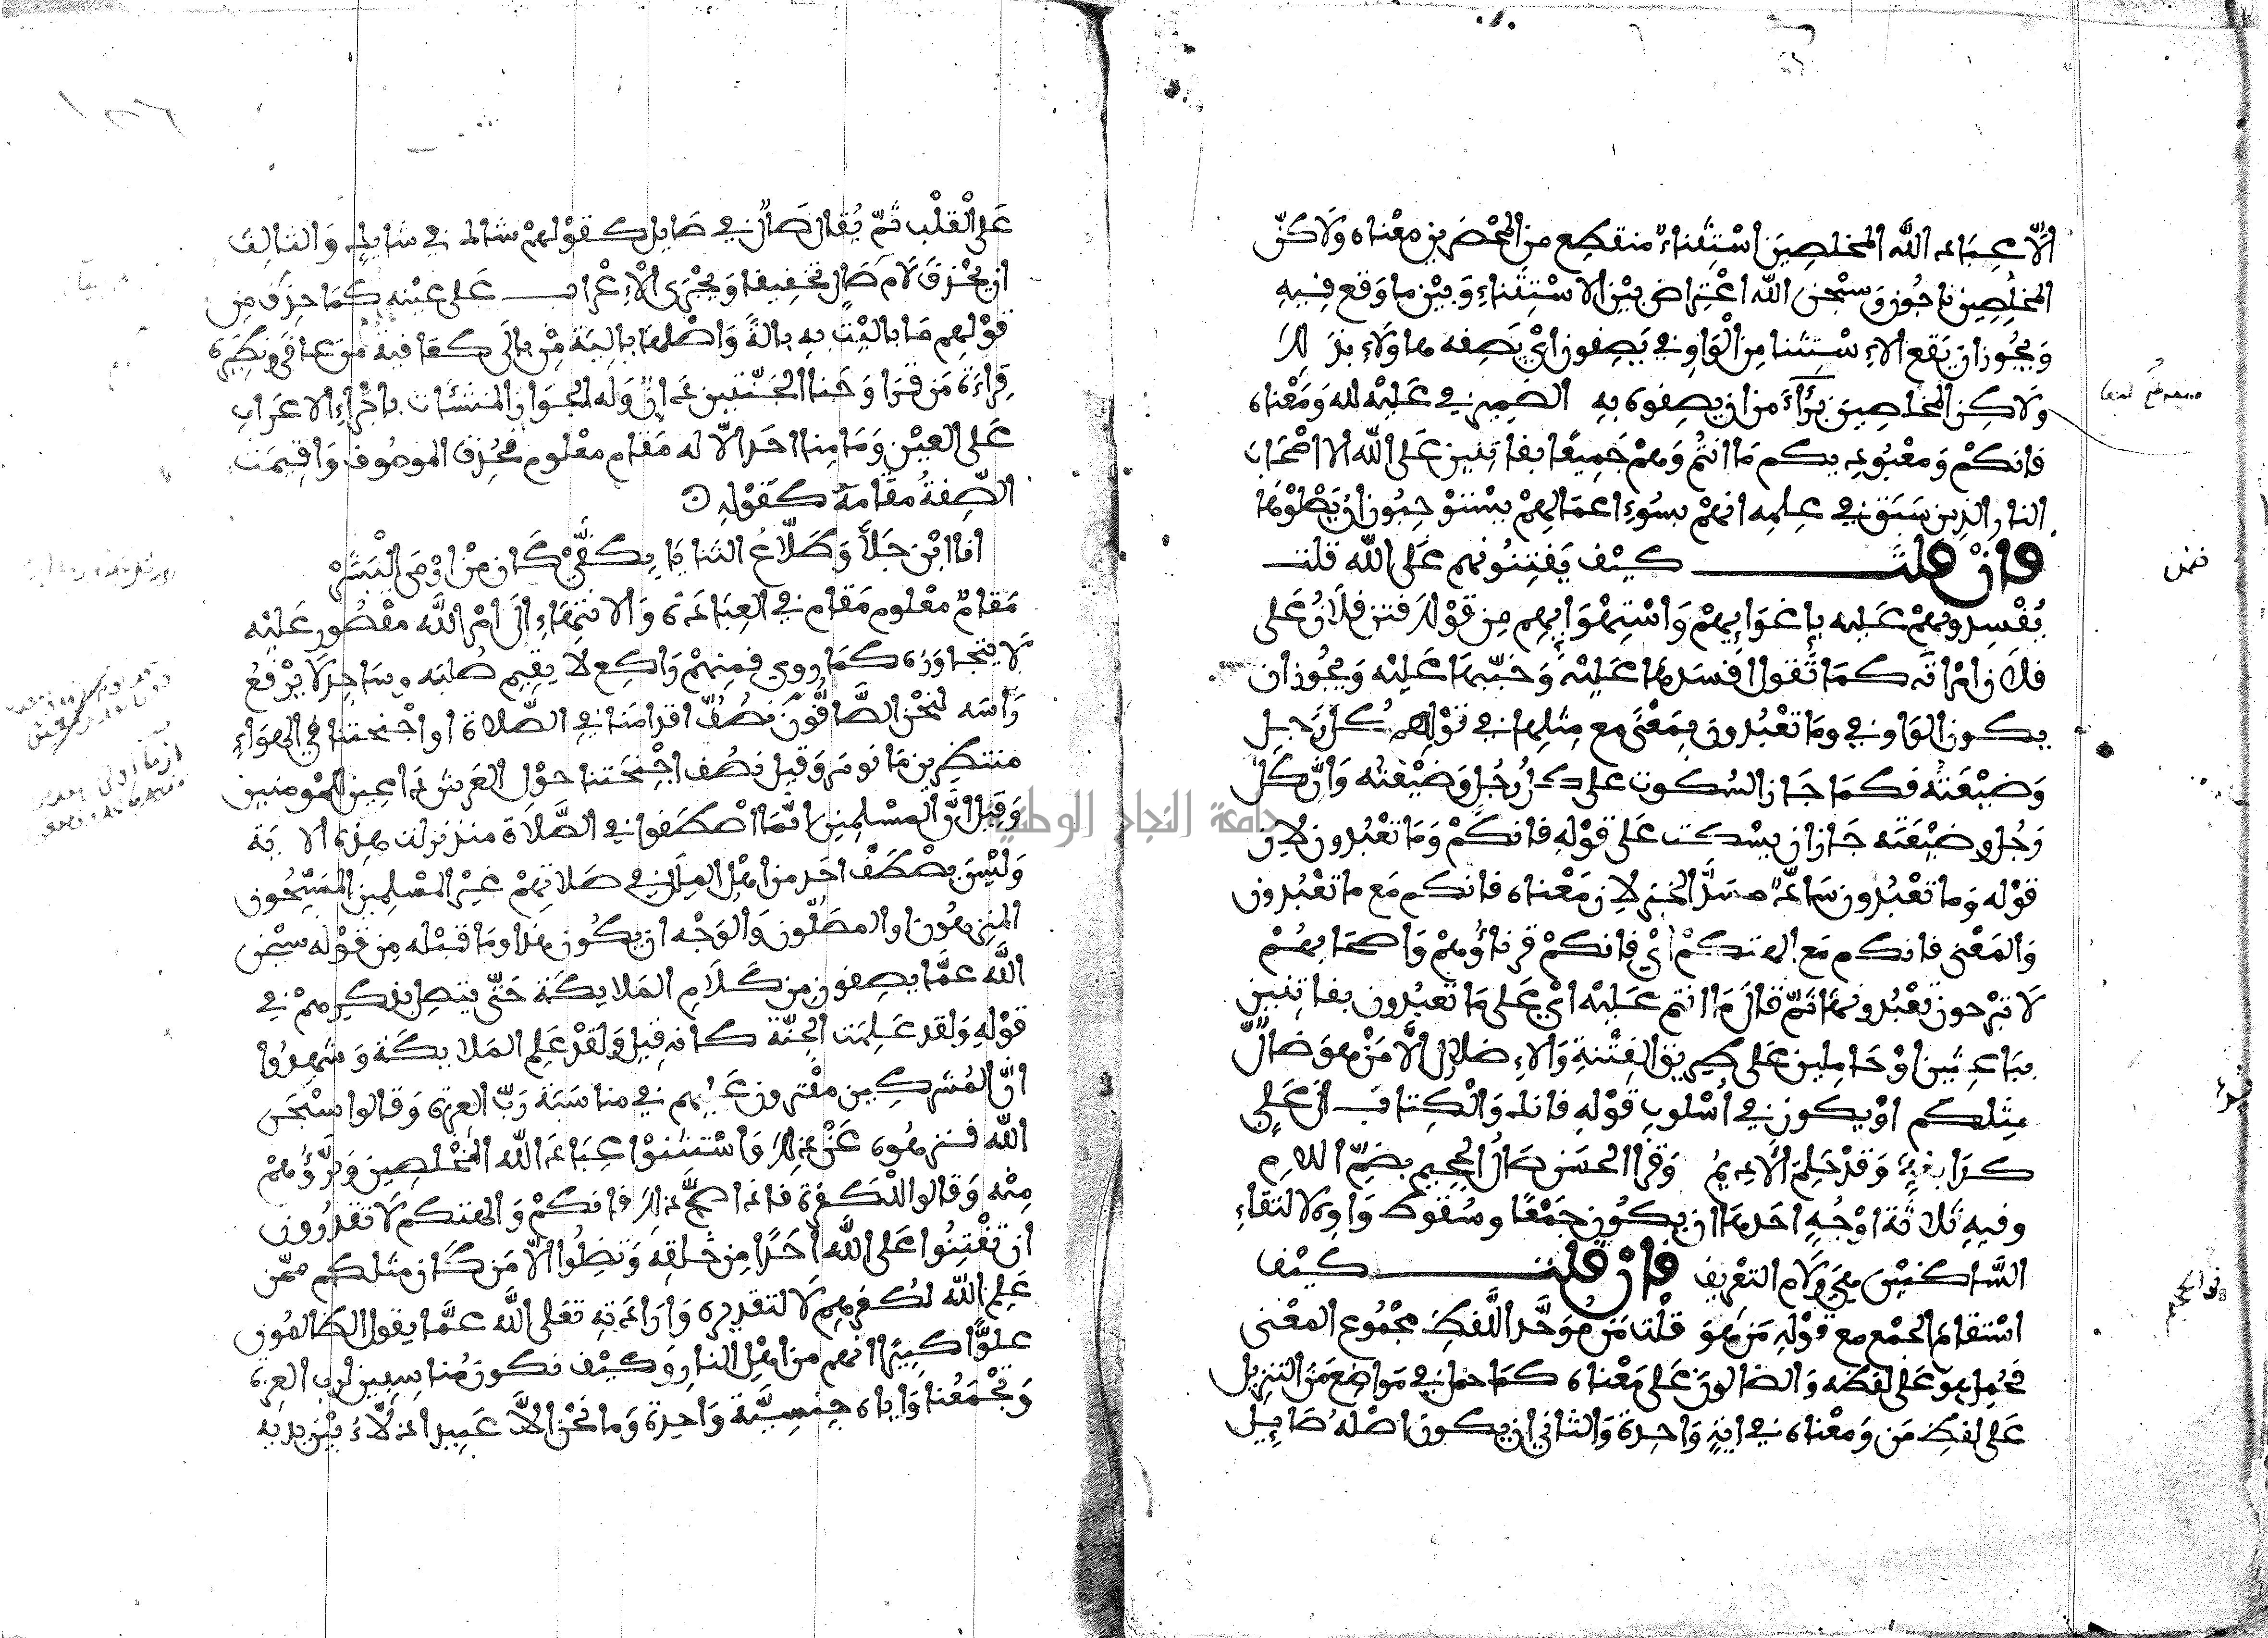 الّا عِبَاد اللَّه المخلصِين اسْتِثْناءٌ منقطِع من المحْضَرين معْناه ولاكنّ
المخلِصِين ناجُون وَسبْحٰن اللَّه اعْتِراض بيْن الاسْتِثناءِ وَبيْن ما وَقع فِيهِ
وَيجُوز ان يَقع الاِسْتِثنا مِن الْوَاوِ في يَصِفون ايْ يَصِفه هاولَاءِ بذلك
ولاكِن المخلصِين بُرَآءُ من ان يصِفوه بهِ الضمير في عَليْه لله وَمَعْناه
فانكمْ وَمعْبُودِيكم مَا انتُم وَهمْ جَمِيعًا بفاتنين عَلى اللَّه الا اصْحَابَ
النار الذين سَبَق في عِلمِه انهمْ بسُوءِ اعمَالهمْ يسْتوْجِبُون ان يَصْلوْها
فانْ قلتَ كيْف يَفتِنُونهم عَلى اللَّه قلت
يُفْسِدونهمْ عَليه بإغوَايِهمْ وَاسْتِهْوَايِهِم مِن قوْلك فتن فلَانٌ عَلى
فلَان امْرَاته كمَا تَقول افسَدها عَليْه وَخبّبها عَليْه وَيجُوز ان
يكون الوَاو في ومَا تعْبُدون بمَعْنَى مع مِثلها في قوْلهم كلّ رَجلٍ
وَضيْعَته فكمَا جَاز السُكوت على كلّ رُجُل وَضيْعته وَانّ كلّ
رَجُل وضيْعَته جَاز ان يسْكت عَلى قوْله فانكمْ وَمَا تعْبُدون لان
قوْله وَما تعْبُدون سَادٌّ مسَدَّ الخبر لان مَعْناه فانكم مَع ما تعْبُدون
وَالمَعْنى فانكم مَع الهتكمْ ايْ فانكمْ قرناؤهمْ وَاصحَابهُمْ
لَا تبْرحون تعْبُدونها ثمّ قالَ مَا انتم عَليْه ايْ عَلى مَا تَعبُدون بفاتِنين
ببَاعِثين اوْ حَامِلين عَلى طريق الفِتْنةِ وَالاِضلال الَّا مَنْ هوَ ضَالّ
مِثلكم اوْ يكون في اُسْلوب قوْلهِ فانك وَالْكِتابَ الى عَليٍّ
كدَابغةٍ وَقدْ حَلِمَ الَادِيمُ وَقرا الحسَن صَالُ الجحِيم بضَمّ اللامِ
وفيهِ ثلاثة اوْجُهٍ احَدها ان يكُون جَمْعًا وسُقوط وَاوه لالتقاءِ
السَّاكنيْن هيَ وَلَام التعْريف فانْ قلتَ كيْف
اسْتقام الجمْع مع قوْلهِ مَن هوَ قلْت مَن مُوَحَّد اللَّفظِ مجْمُوع المعْنى
فحُمِل هوَ عَلى لفظه وَالصّالونَ عَلى مَعْناه كمَا حمل في مَواضِع من التنزيل
عَلى لفظِ مَن وَمعْناه في ايَةٍ وَاحِدة وَالثاني ان يكون اصْلهُ صَايِل
عَلى الْقلْب ثمَّ يُقال صَالٌ في صَايل كقوْلهمْ شاك في شايك وَالثالث
ان يحْذف لَام صَالٍ تخفِيفا وَيجْرَى الْاعْراب عَلى عيْنه كمَا حذِف مِن
قوْلهِم مَا باليْت به بالةً وَاصْلها بالِيَة مِن بالَى كعَافية مُن عافى وَنظيره
قِراءة مَن قرَا وَجَنا الجنّتيْن دَانٌ وَله الجوَارُ المنشئات باجْراء الاعْرَاب
عَلى العيْن وَمَا منا احَد الّا له مَقَام معْلوم فحُذِف الموصُوف وَاقيمَت
الصّفةُ مقَامهُ كقوْلهِ
انا ابْن جَلَا وَطلّاع الثنايَا بكفّيْ كان مِنْ ارْمَى الْبَشَرْ
مَقامٌ معْلوم مَقام في العِبَادَة وَالانتِهاءِ الى امْر اللَّه مقْصُور عَليْه
لا يتجاوزه كمَا روي فمِنهمْ رَاكِع لَا يقيم صُلبَه وسَاجد لَا يرْفعُ
رَاسَه لنحْن الصَّافُّونَ نصُفُّ اقدامَنا في الصَّلاة او اجْنحتنا في الهوَاءِ
منتظرين مَا نومَر وَقيل نصُف اجْنحَتنا حوْل العَرش دَاعِين للمومنين
وَقيل انَّ المسْلمِين انّمَا اصْطفوا في الصَّلَاة منذ نزلت هذه الاية
وَليْس يصْطفّ احَد من اهْل المِلَل في صَلاتهمْ غيْر المسْلِمِين المسَبّحُون
المنزهُون او المصَلّون وَالوَجْه ان يكُون هذا ومَا قبْله مِن قوْله سبْحٰن
اللَّه عمَّا يصِفون مِن كلَامِ المَلَايكة حَتّى يتصِل بذِكرهمْ في
قوْلهِ وَلقد عَلِمَت الجنَّة كانه قيل وَلقدْ عَلِم المَلَايكة وَشهدُوا
انّ المُشركين مفْترون عَليهم في مناسَبَة رَبّ العِزة وَقالوا سبْحٰن
اللَّه فنزهُوه عَنْ ذلك وَاسْتثنوْا عِبَاد اللَّه المُخْلصِين وَبَرَّؤُهمْ
مِنْه وَقالوا للْكفرة فاذا صحَّ ذلك فانكمْ وَالهتكم لَا تقدرُون
ان تفْتِنُوا عَلى اللَّه اَحَدًا مِن خَلقه وَتضلُّوا الّا مَن كان مثلكم ممّن
عَلِم اللَّه لكفرهم لا لتقديره وَارَادته تعَلى اللَّه عمَّا يقول الظالمُون
علوًّا كبِيرًا انهم من اهْل النار وَكيْف نكون مُناسِبِين لرب العِزة
وَتجْمَعُنا وَاياه جِنسِيَّة وَاحِدة وَما نحْن الَّا عَبيد اذلّاءُ بيْن يديه
جامعة النجاح الوطنية